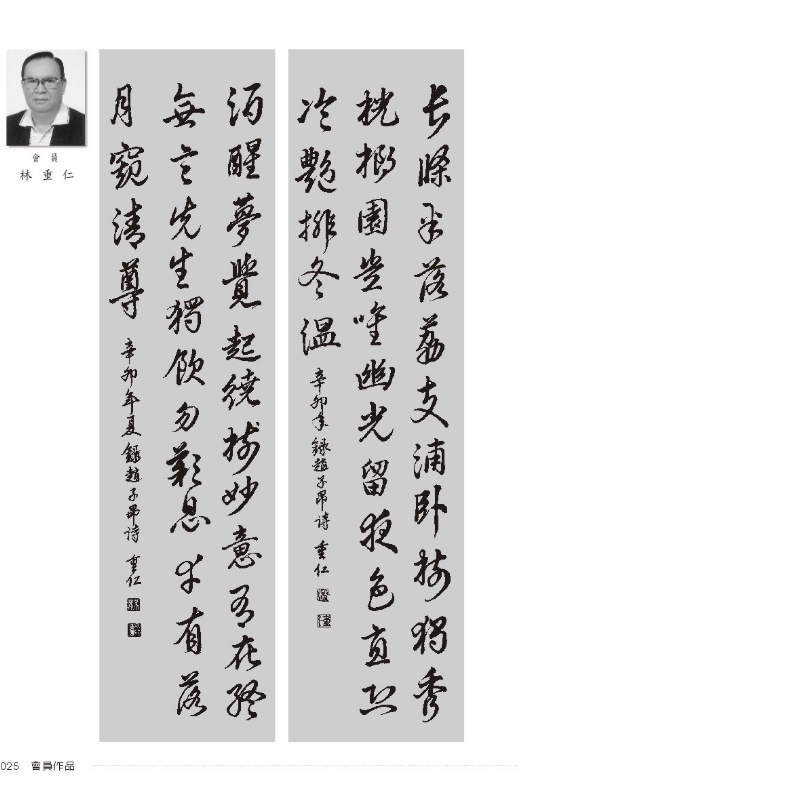 會員
林重仁
长條半落荔支浦卧樹獨秀
桄榔園豈唯幽光留夜色直恐
冷艷排冬温
辛卯年錄趙子昂诗 重仁
酒醒夢覺起繞樹妙意有在終
無言先生獨飲勿歎息幸有落
月窺清尊
辛卯年夏錄趙子昂诗 重仁
025 會員作品